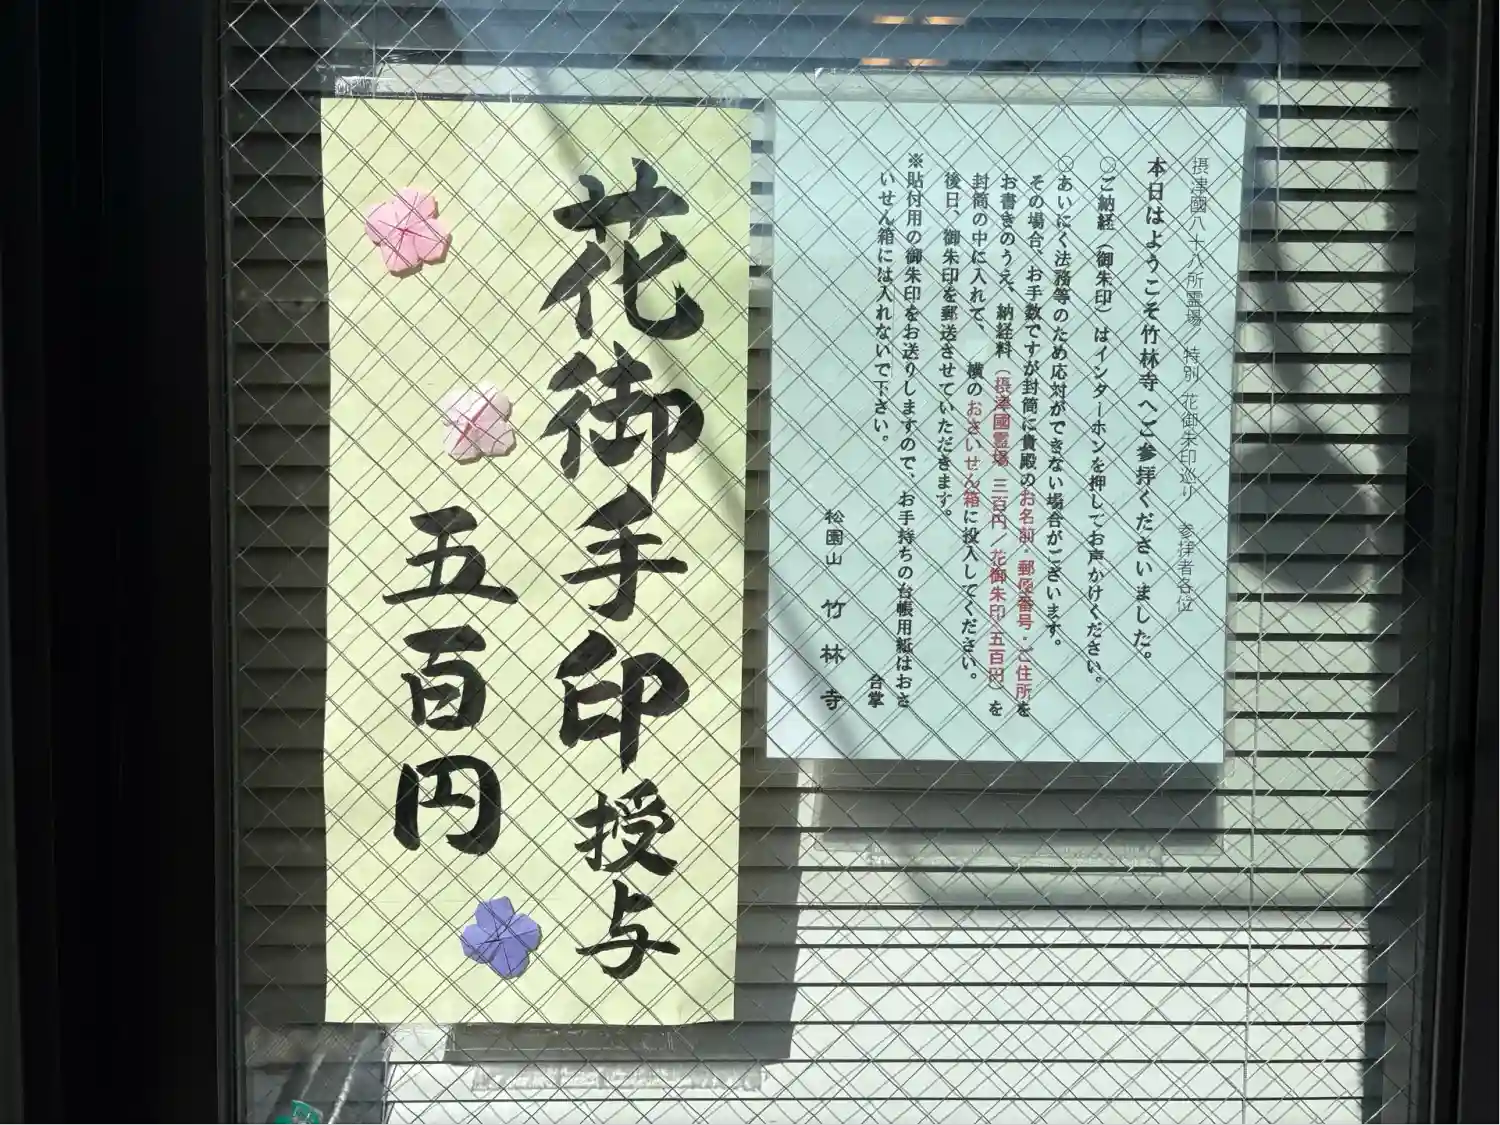 摂津國八十八所霊場／特別 花御朱印巡り 参拝者各位
本日はようこそ竹林寺へご参拝くださいました。
○ご納経（御朱印）はインターホンを押してお声かけください。
○あいにく法務等のため応対ができない場合がございます。
その場合、お手数ですが封筒に貴殿のお名前・郵便番号・ご住所を
お書きのうえ、納経料（摂津國霊場 三百円／花御朱印 五百円）を
封筒の中に入れて、横のおさいせん箱に投入してください。
後日、御朱印を郵送させていただきます。
※貼付用の御朱印をお送りしますので、お手持ちの台帳用紙はおさ
いせん箱には入れないで下さい。
合掌
松園山 竹林寺
花御手印授与
五百円